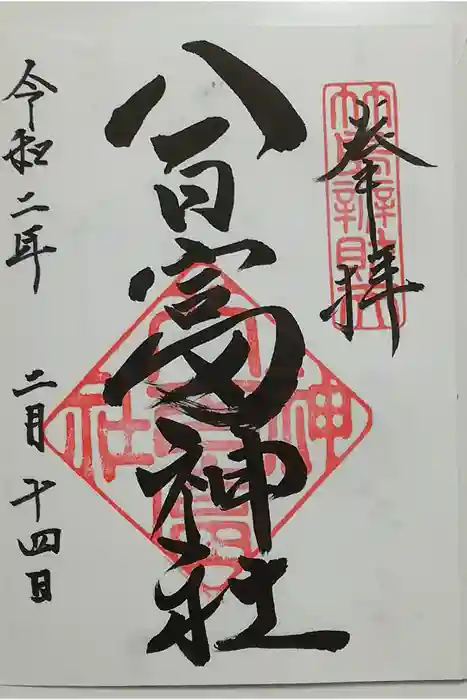 奉拝
八百富神社
令和二年 二月十四日